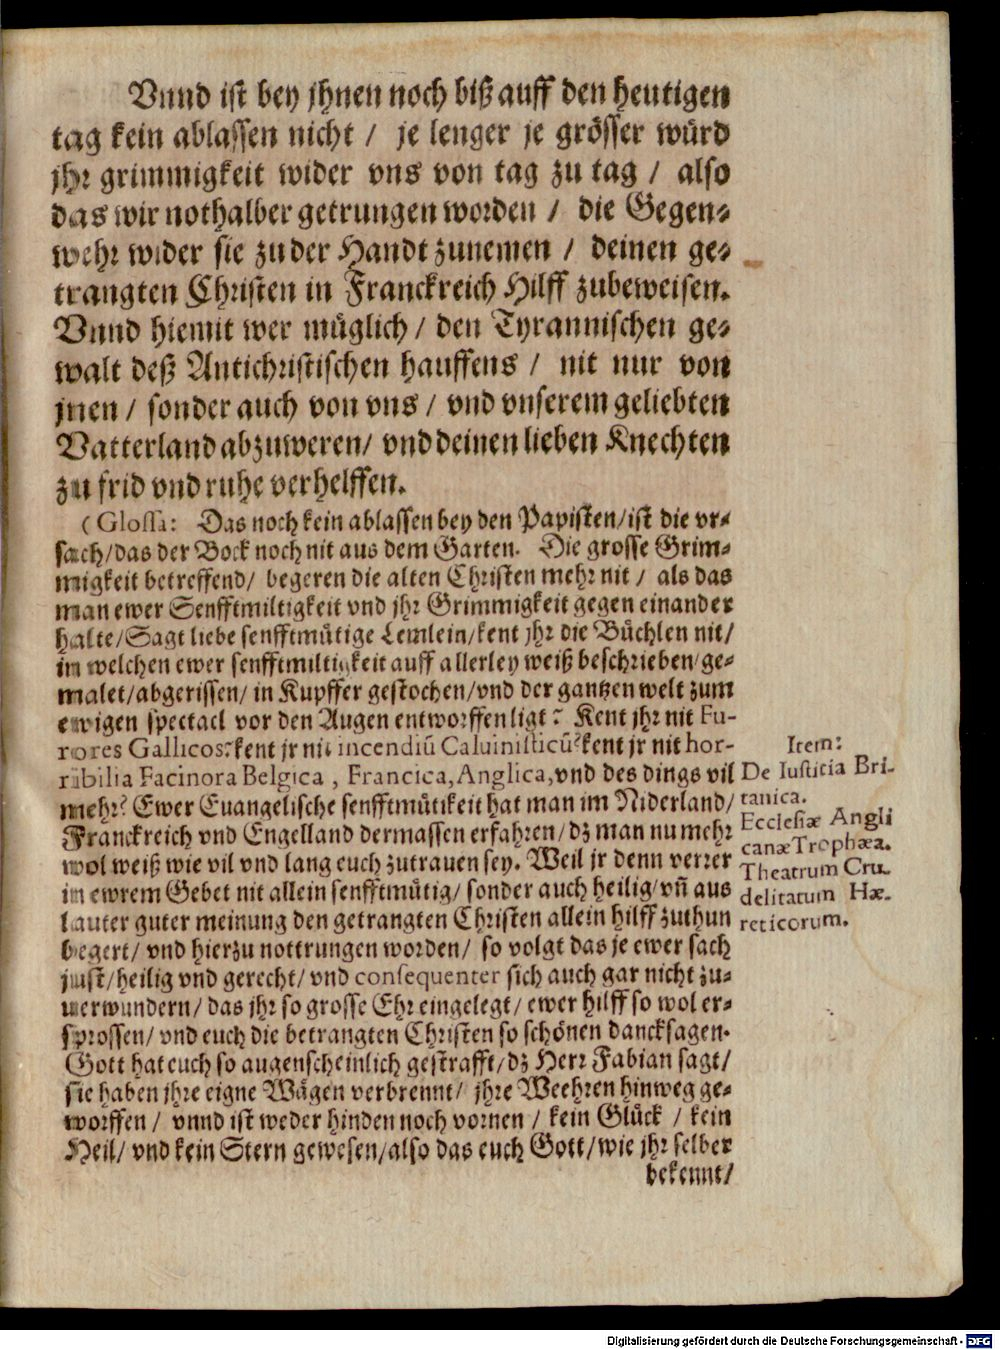 Vnnd ist bey jhnen noch biß auff den heutigen
tag kein ablassen nicht / je lenger je grösser würd
jhr grimmigkeit wider vns von tag zu tag / also
das wir nothalber getrungen worden / die Gegen-
wehr wider sie zu der Handt zunemen / deinen ge-
trangten Christen in Franckreich Hilff zubeweisen.
Vnnd hiemit wer müglich / den Tyrannischen ge-
walt deß Antichristischen hauffens / nit nur von
jnen / sonder auch von vns / vnd vnserem geliebten
Vatterland abzuweren / vnd deinen lieben Knechten
zu frid vnd ruhe verhelffen.
(Glossa: Das noch kein ablassen bey den Papisten / ist die vr-
sach / das der Bock noch nit aus dem Garten. Die grosse Grim-
migkeit betreffend / begeren die alten Christen mehr nit / als das
man ewer Senfftmiltigkeit vnd jhr Grimmigkeit gegen einander
halte / Sagt liebe senfftmütige Lemlein / kent jhr die Büchlen nit /
in welchen ewer senfftmiltigkeit auff allerley weiß beschrieben / ge-
malet / abgerissen / in Kupffer gestochen / vnd der gantzen welt zum
ewigen spectacl vor den Augen entworffen ligt? Kent jhr nit Fu-
rores Gallicos? kent jr nit incendiū Caluinisticū? kent jr nit hor-
ribilia Facinora Belgica, Francica, Anglica, vnd des dings vil
mehr? Ewer Euangelische senfftmütikeit hat man im Niderland /
Franckreich vnd Engelland dermassen erfahren / dz man nu mehr
wol weiß wie vil vnd lang euch zutrauen sey. Weil jr denn verrer
in ewrem Gebet nit allein senfftmütig / sonder auch heilig / vn̄ aus
lauter guter meinung den getrangten Christen allein hilff zuthun
begert / vnd hierzu nottrungen worden / so volgt das je ewer sach
just / heilig vnd gerecht / vnd consequenter sich auch gar nicht zu-
uerwundern / das jhr so grosse Ehr eingelegt / ewer hilff so wol er-
sprossen / vnd euch die betrangten Christen so schönen dancksagen.
Gott hat euch so augenscheinlich gestrafft / dz Herr Fabian sagt /
sie haben jhre eigne Wägen verbrennt / jhre Weehren hinweg ge-
worffen / vnnd ist weder hinden noch vornen / kein Glück / kein
Heil / vnd kein Stern gewesen / also das euch Gott / wie jhr selber
bekennt /
Item:
De Iustitia Bri-
tanica.
Ecclesiæ Angli
canæ Trophæa.
Theatrum Cru-
delitatum Hæ-
reticorum.
Digitalisierung gefördert durch die Deutsche Forschungsgemeinschaft - DFG